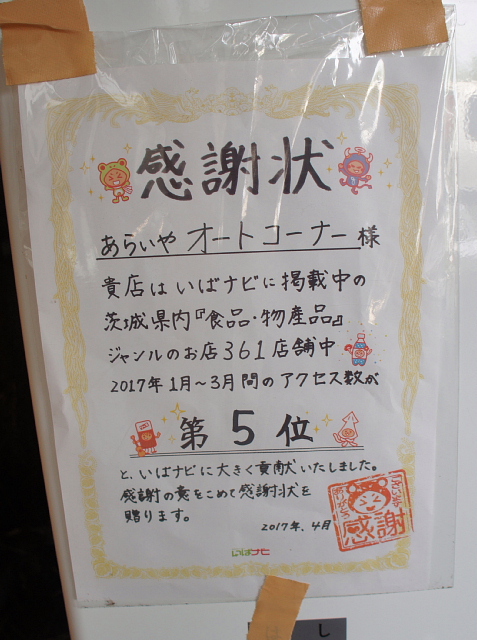 感謝状
あらいや オートコーナー 様
貴店は いばナビに掲載中の
茨城県内『食品・物産品』
ジャンルのお店361店舗中
2017年1月～3月間のアクセス数が
第5位
と、いばナビに大きく貢献いたしました。
感謝の意をこめて感謝状を
贈ります。
2017年.4月
感謝
いばナビ
し